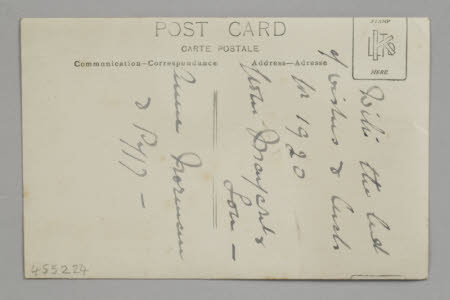 POST CARD
CARTE POSTALE
Communication—Correspondance
Address—Adresse
STAMP
HERE
With the
of wishes & luck
for 1920
from
&
Lou —
Anne Norman
&
455224